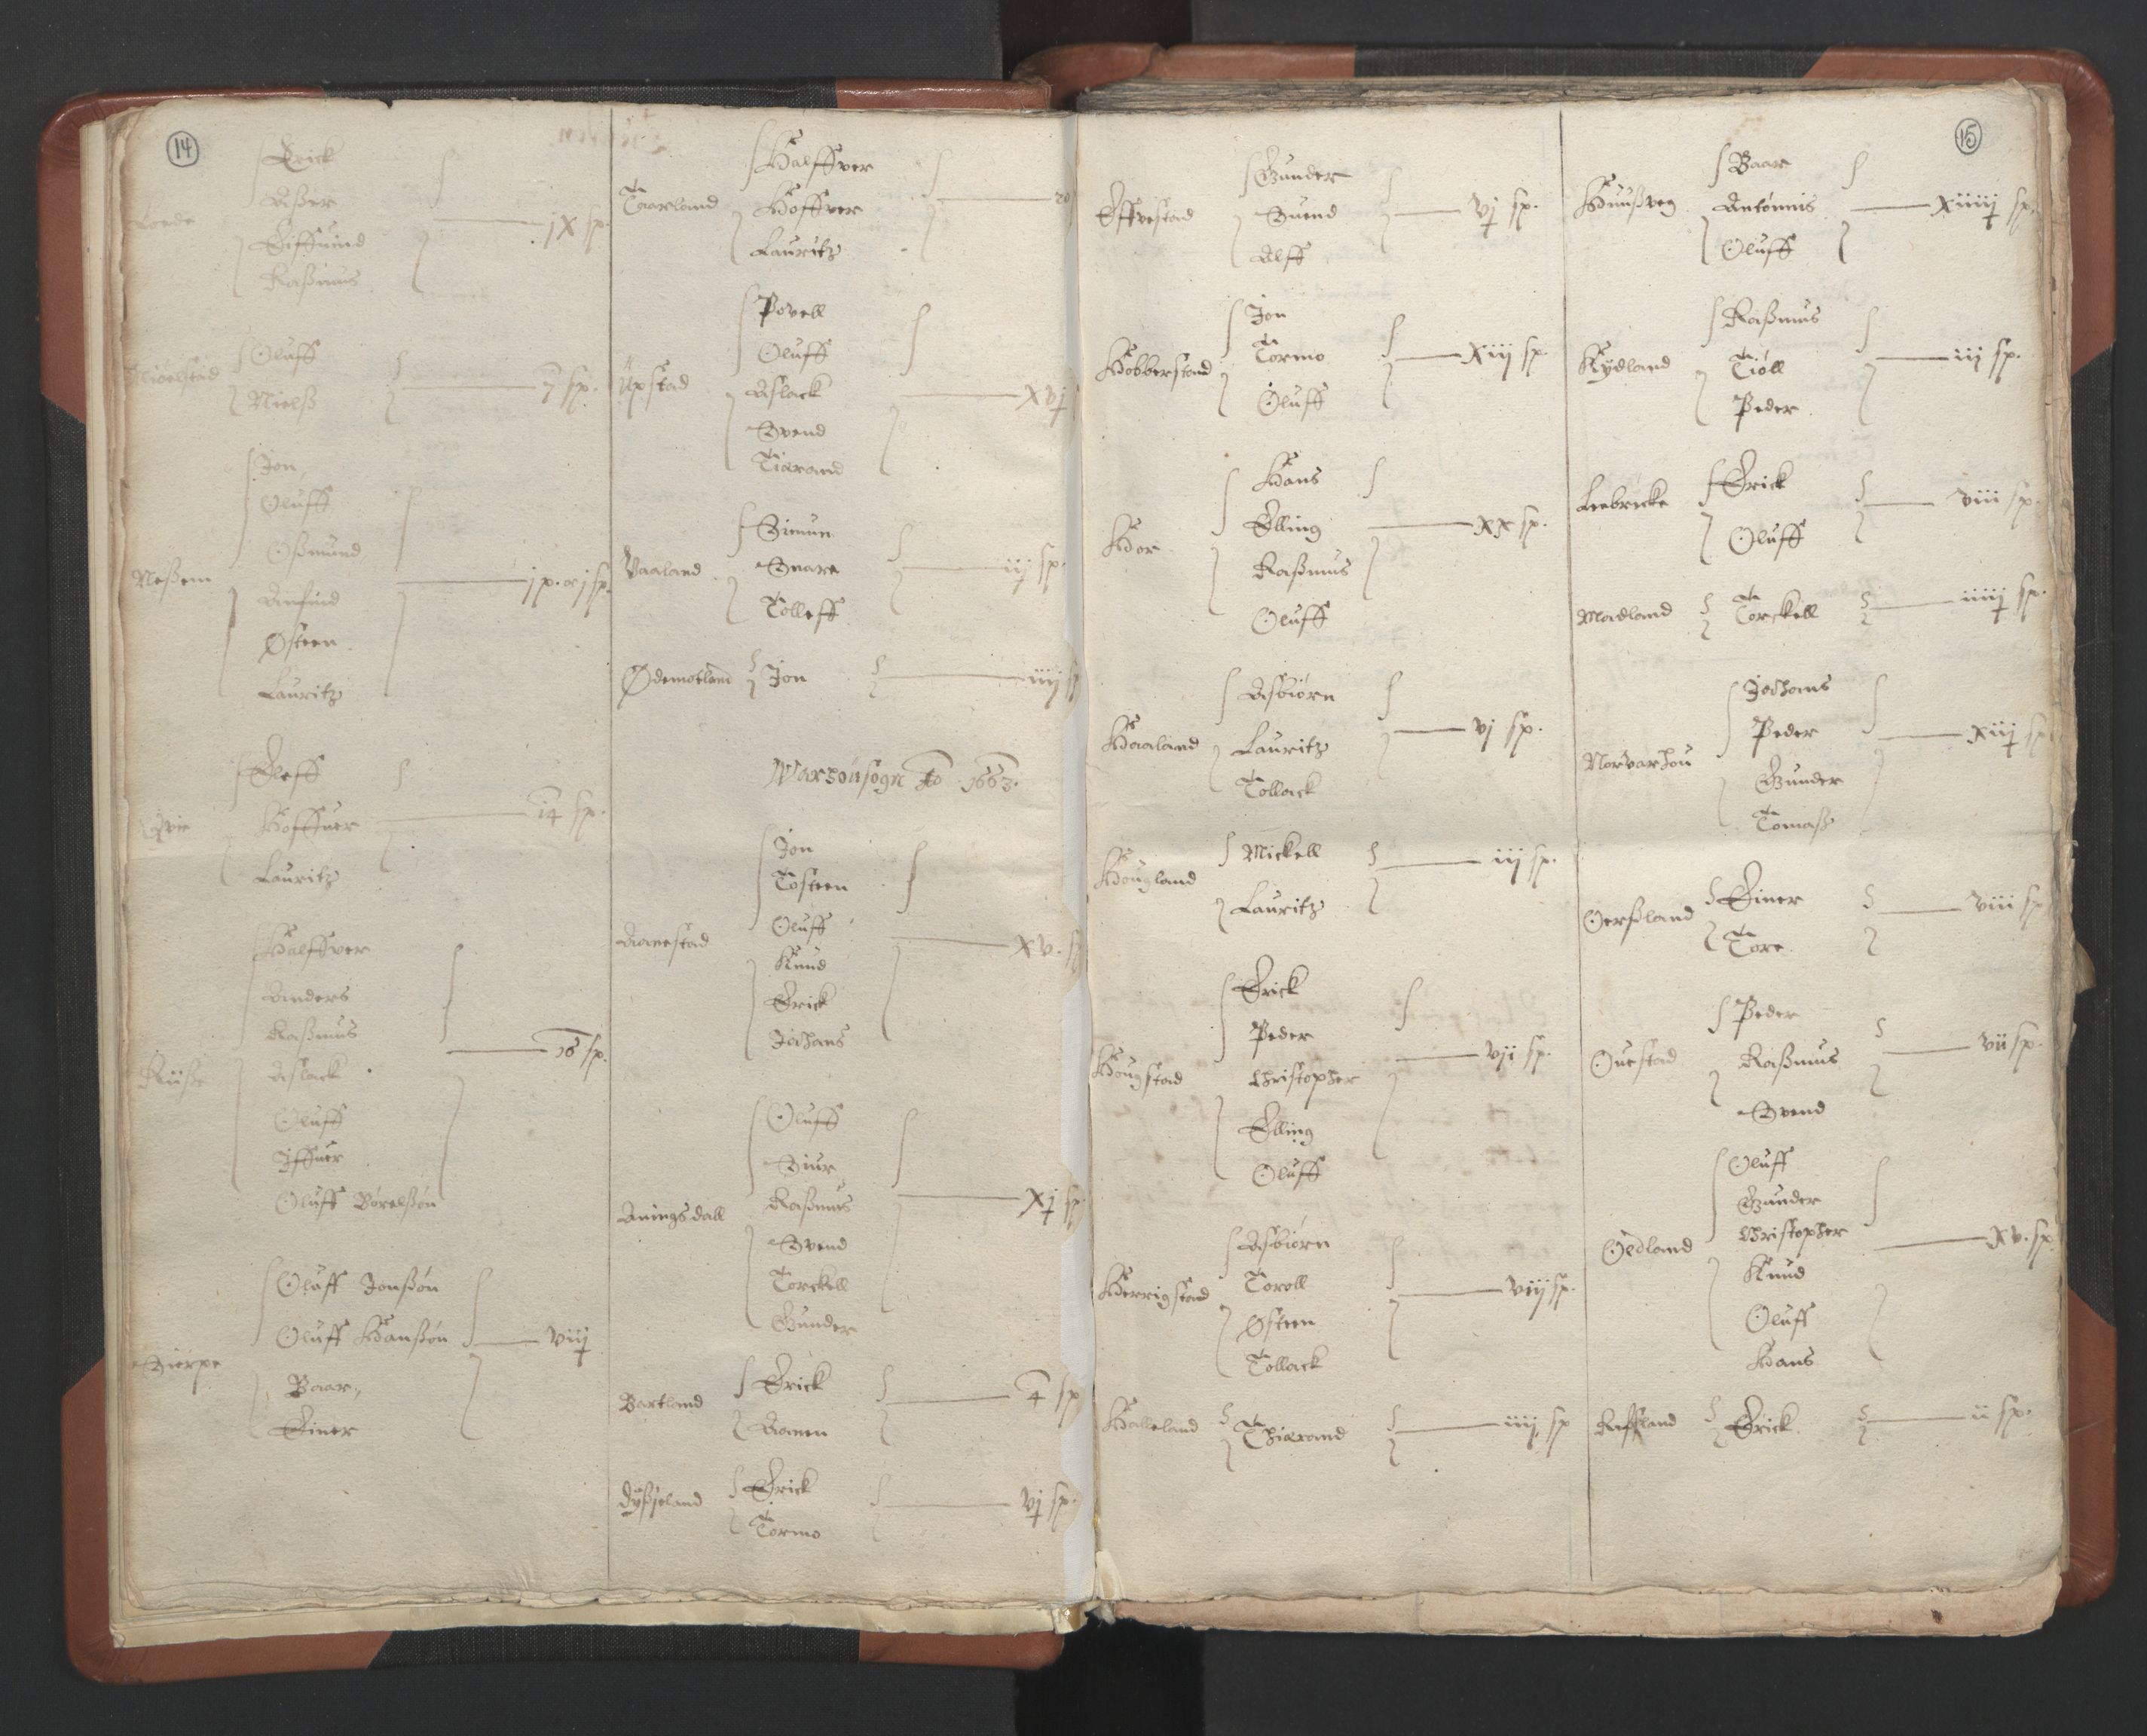 14
Erick
Aßer
Eiffuind
Raßmus
jx sp.
Oluff
Nielß
7 sp.
Neßem
Jon
Oluff
Oßmund
Amfind
Østen
Lauritz
j p. oc j sp.
Eleff
Hoffuer
Lauritz
14 sp.
Halffver
Anders
Raßmus
Aslack
Oluff
Iffuer
Oluff Börelßøn
16 sp.
Sierpe
Oluff Jonßøn
Oluff Hanßøn
Baar
Einer
viij
Taarland
Halffver
Hoffver
Lauritz
20
Upstad
Povell
Oluff
Aslack
Svend
Tiærand
xvj
Vaaland
Simun
Snare
Tolleff
iij sp.
Ødemotland
Jon
iiij
Warhousogn Ao 1663.
Aanestad
Jon
Tosteen
Oluff
Knud
Erick
Johans
xv.
Aningsdall
Oluff
Siur
Raßmus
Svend
Torckell
Gunder
xj sp.
Bartland
Erick
Aanen
4 sp
Dyßieland
Erick
Tormo
vj sp.
15
Effvestad
Gunder
Suend
Alff
vj sp.
Hobberstad
Jon
Tormo
Oluff
xiij sp.
Hor
Hans
Elling
Raßmus
Oluff
xx sp.
Haaland
Asbiørn
Lauritz
Tollack
vj sp.
Hougland
Mickell
Lauritz
iij sp.
Hougstad
Erick
Peder
Christopher
Elling
Oluff
vij sp.
Herrigstad
Asbiørn
Toroll
Østen
Tollack
viij sp.
Halleland
Thiærand
iiij sp
Huußveg
Baar
Antonnis
Oluff
xiiij sp.
Kydland
Raßmus
Tiöll
Peder
iij sp.
Leebrecke
Erick
Oluff
viii sp.
Madland
Torckell
iiij sp.
Norvarhou
Johans
Peder
Gunder
Tomaß
xiij sp
Oerßland
Einer
Tore
viii sp
Ouestad
Peder
Raßmus
Svend
vii sp.
Oedland
Oluff
Gunder
Christopher
Knud
Oluff
Hans
xv. sp.
Reffland
Erick
ii sp.